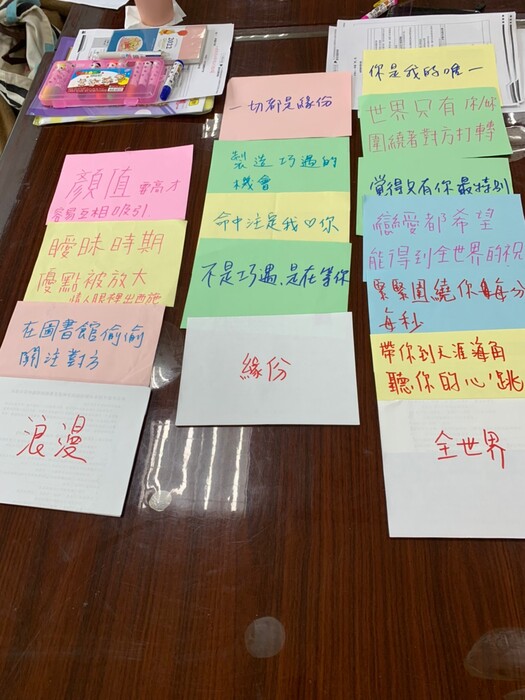 顏值 需高才
容易互相吸引
曖昧時期
優點被放大
情人眼裡出西施
在圖書館偷偷
關注對方
浪漫
一切都是緣份
製造巧遇的
機會
命中注定我♡你
不是巧遇、是在等你
緣份
你是我的唯一
世界只有
圍繞著對方打轉
覺得只有你最特別
戀愛都希望
能得到全世界的祝
緊緊圍繞你每分
每秒
帶你到天涯海角
聽你的心跳
全世界